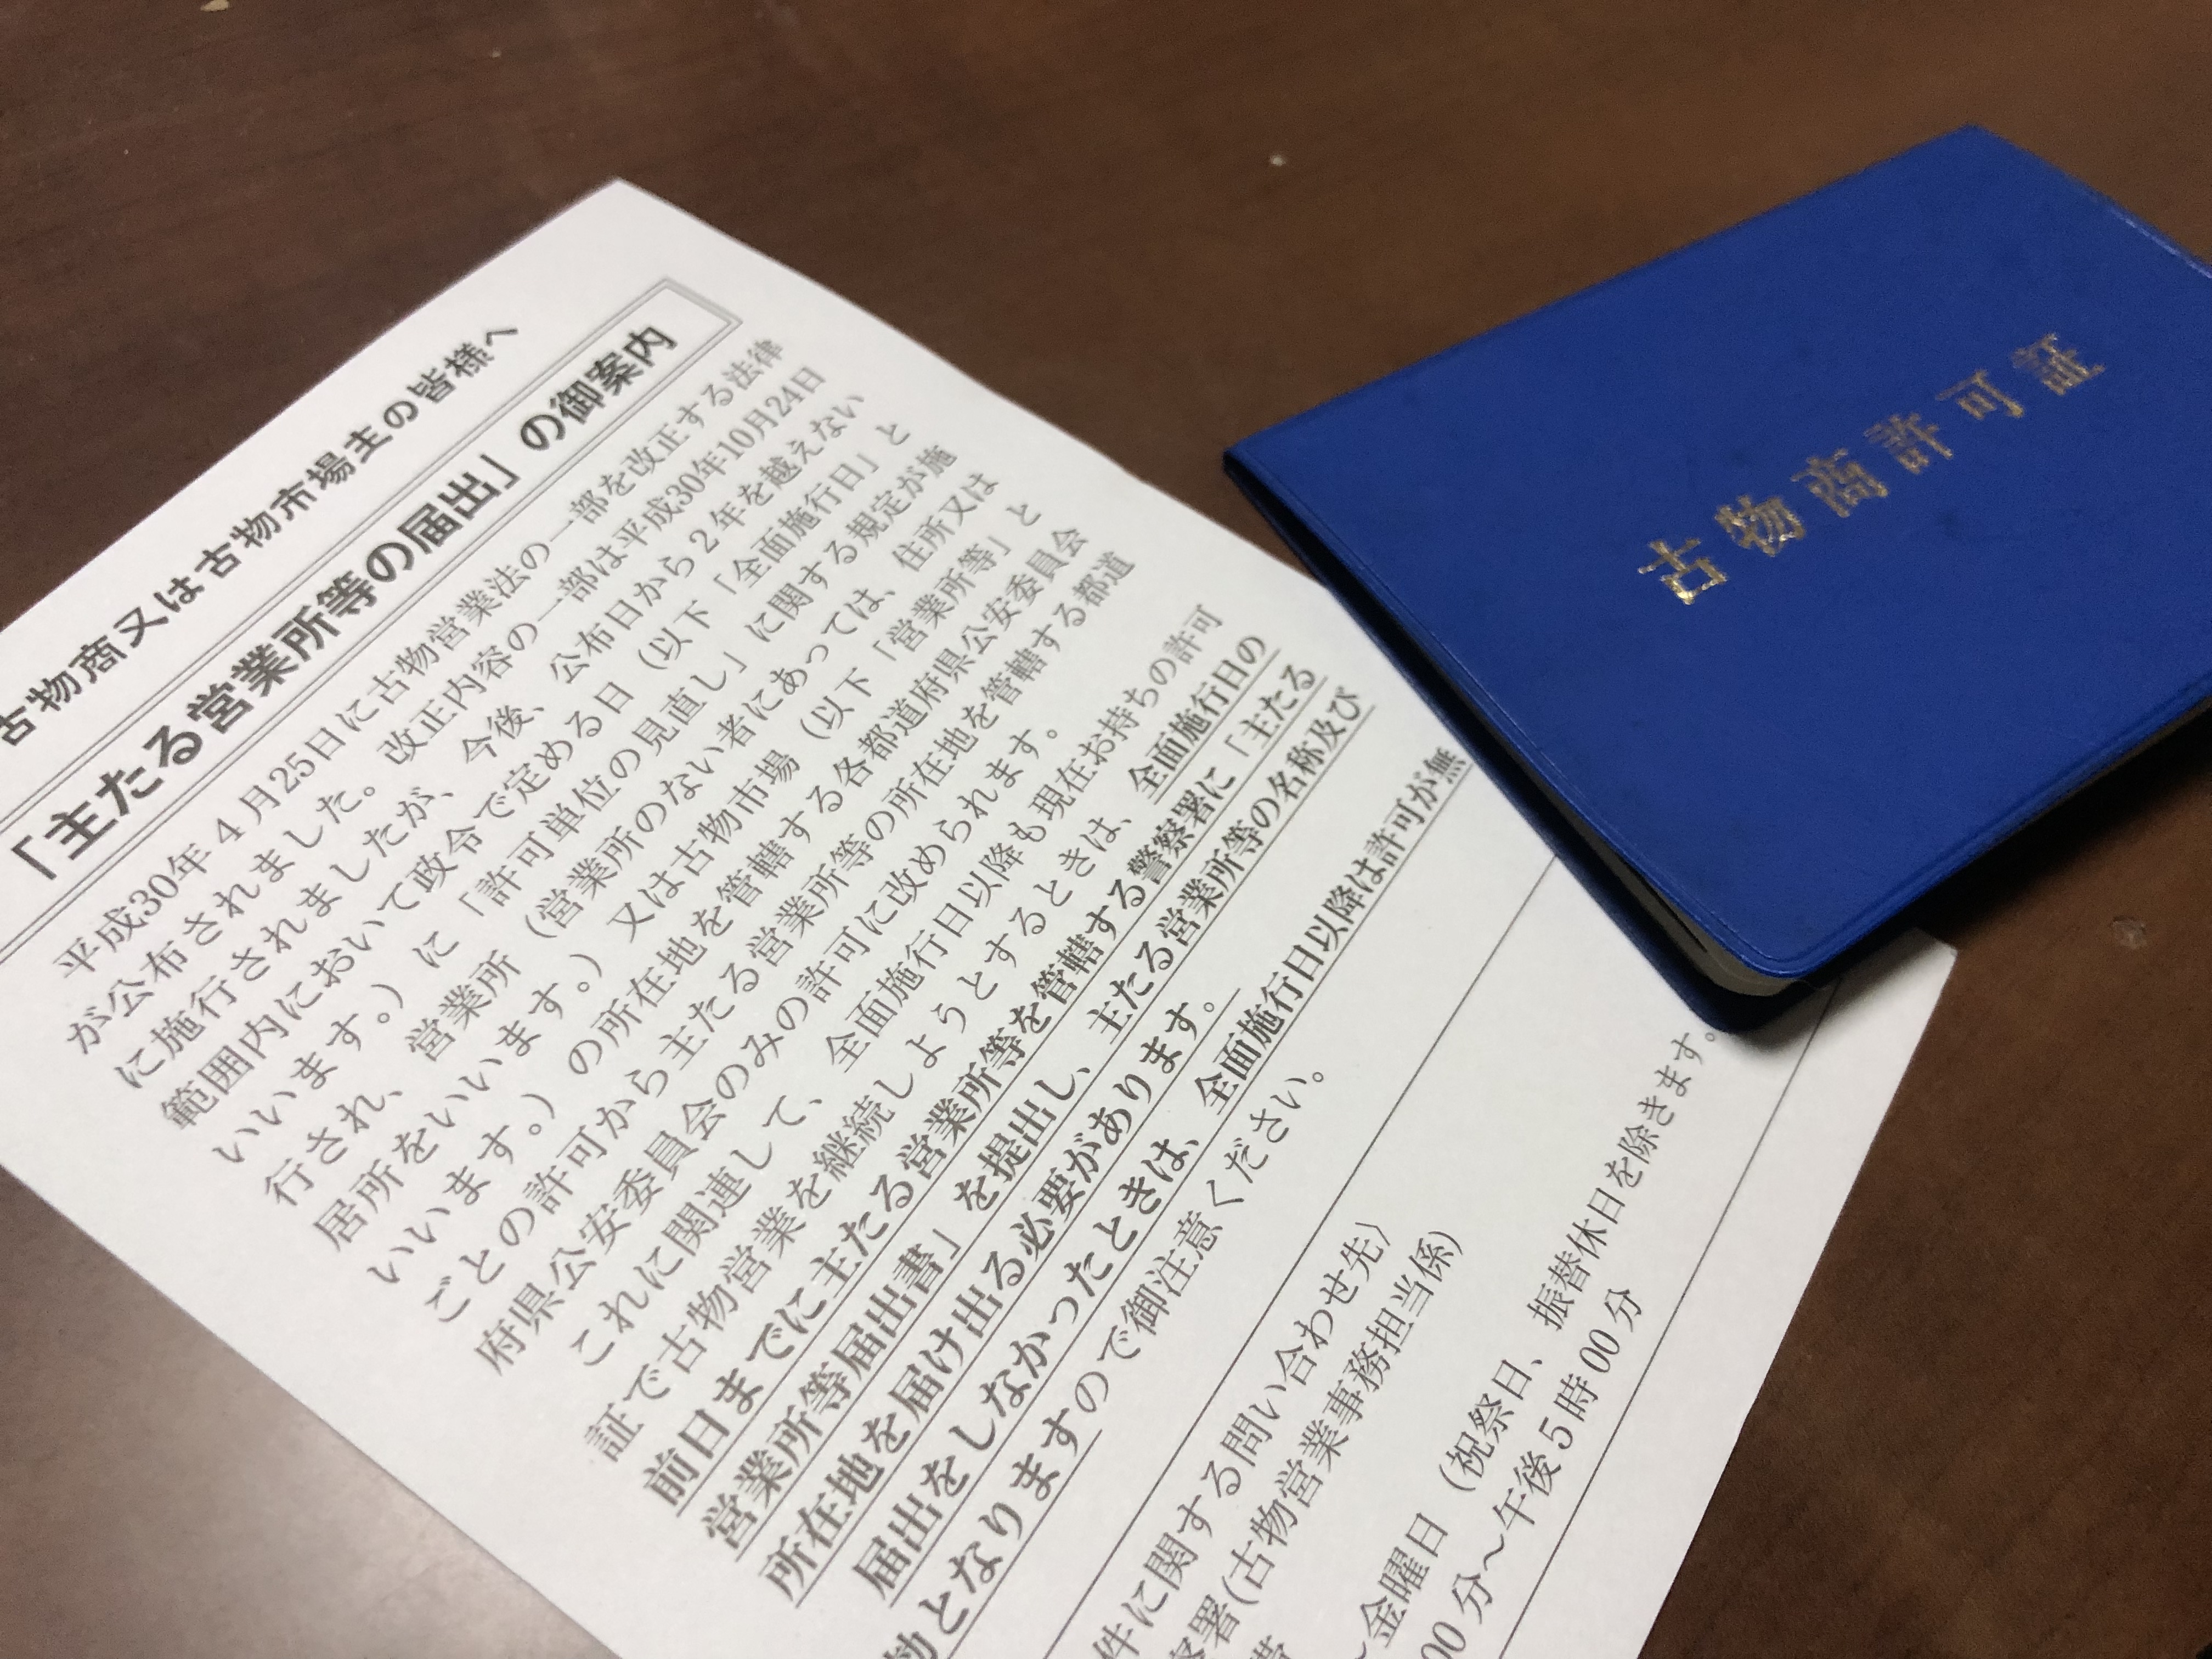 古物商又は古物市場主の皆様へ
「主たる営業所等の届出」の御案内
平成30年4月25日に古物営業法の一部を改正する法律
が公布されました。改正内容の一部は平成30年10月24日
に施行されましたが、今後、公布日から2年を越えない
範囲内において政令で定める日（以下「全面施行日」と
いいます。）に「許可単位の見直し」に関する規定が施
行され、営業所（営業所のない者にあっては、住所又は
居所をいいます。）又は古物市場（以下「営業所等」と
いいます。）の所在地を管轄する各都道府県公安委員会
ごとの許可から主たる営業所等の所在地を管轄する都道
府県公安委員会のみの許可に改められます。
これに関連して、全面施行日以降も現在お持ちの許可
証で古物営業を継続しようとするときは、全面施行日の
前日までに主たる営業所等を管轄する警察署に「主たる
営業所等届出書」を提出し、主たる営業所等の名称及び
所在地を届け出る必要があります。
届出をしなかったときは、全面施行日以降は許可が無
となりますので御注意ください。
件に関する問い合わせ先〉
察署(古物営業事務担当係)
～金曜日（祝祭日、振替休日を除きます。
00分～午後5時00分
古物商許可証